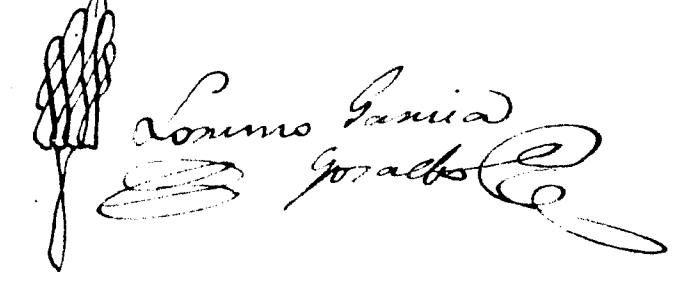 Lorenzo Garcia
Goralbo